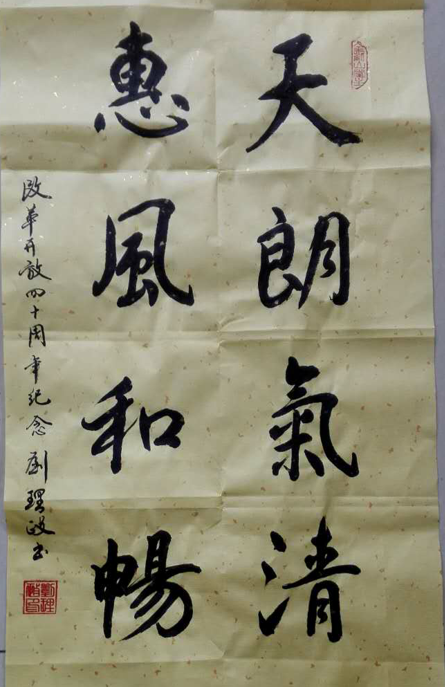 天朗氣清
惠風和暢
改革开放四十周年纪念 刘理政书